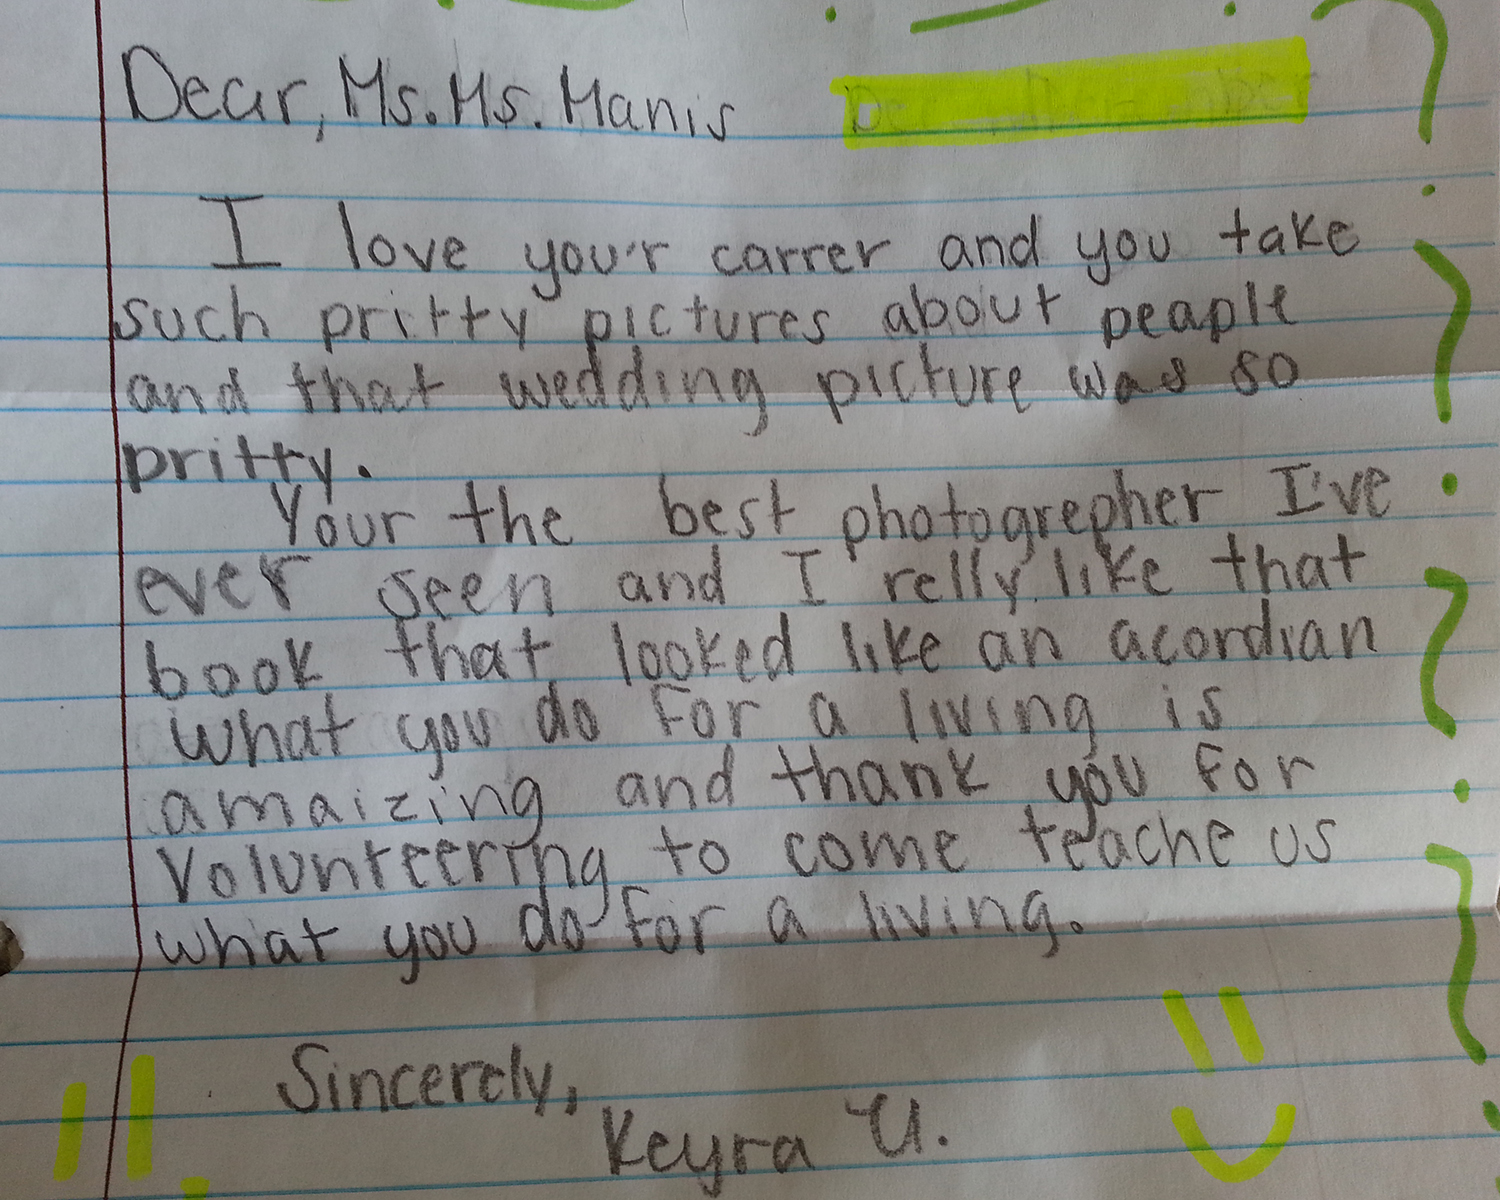 Dear, Ms. Ms. Manis
I love your carrer and you take
such pritty pictures about peaple
and that wedding picture was so
pritty.
Your the best photogrepher I've
ever seen and I relly like that
book that looked like an acordian
what you do for a living is
amaizing and thank you for
Volunteering to come teache us
what you do for a living.
Sincerely,
Keyra U.